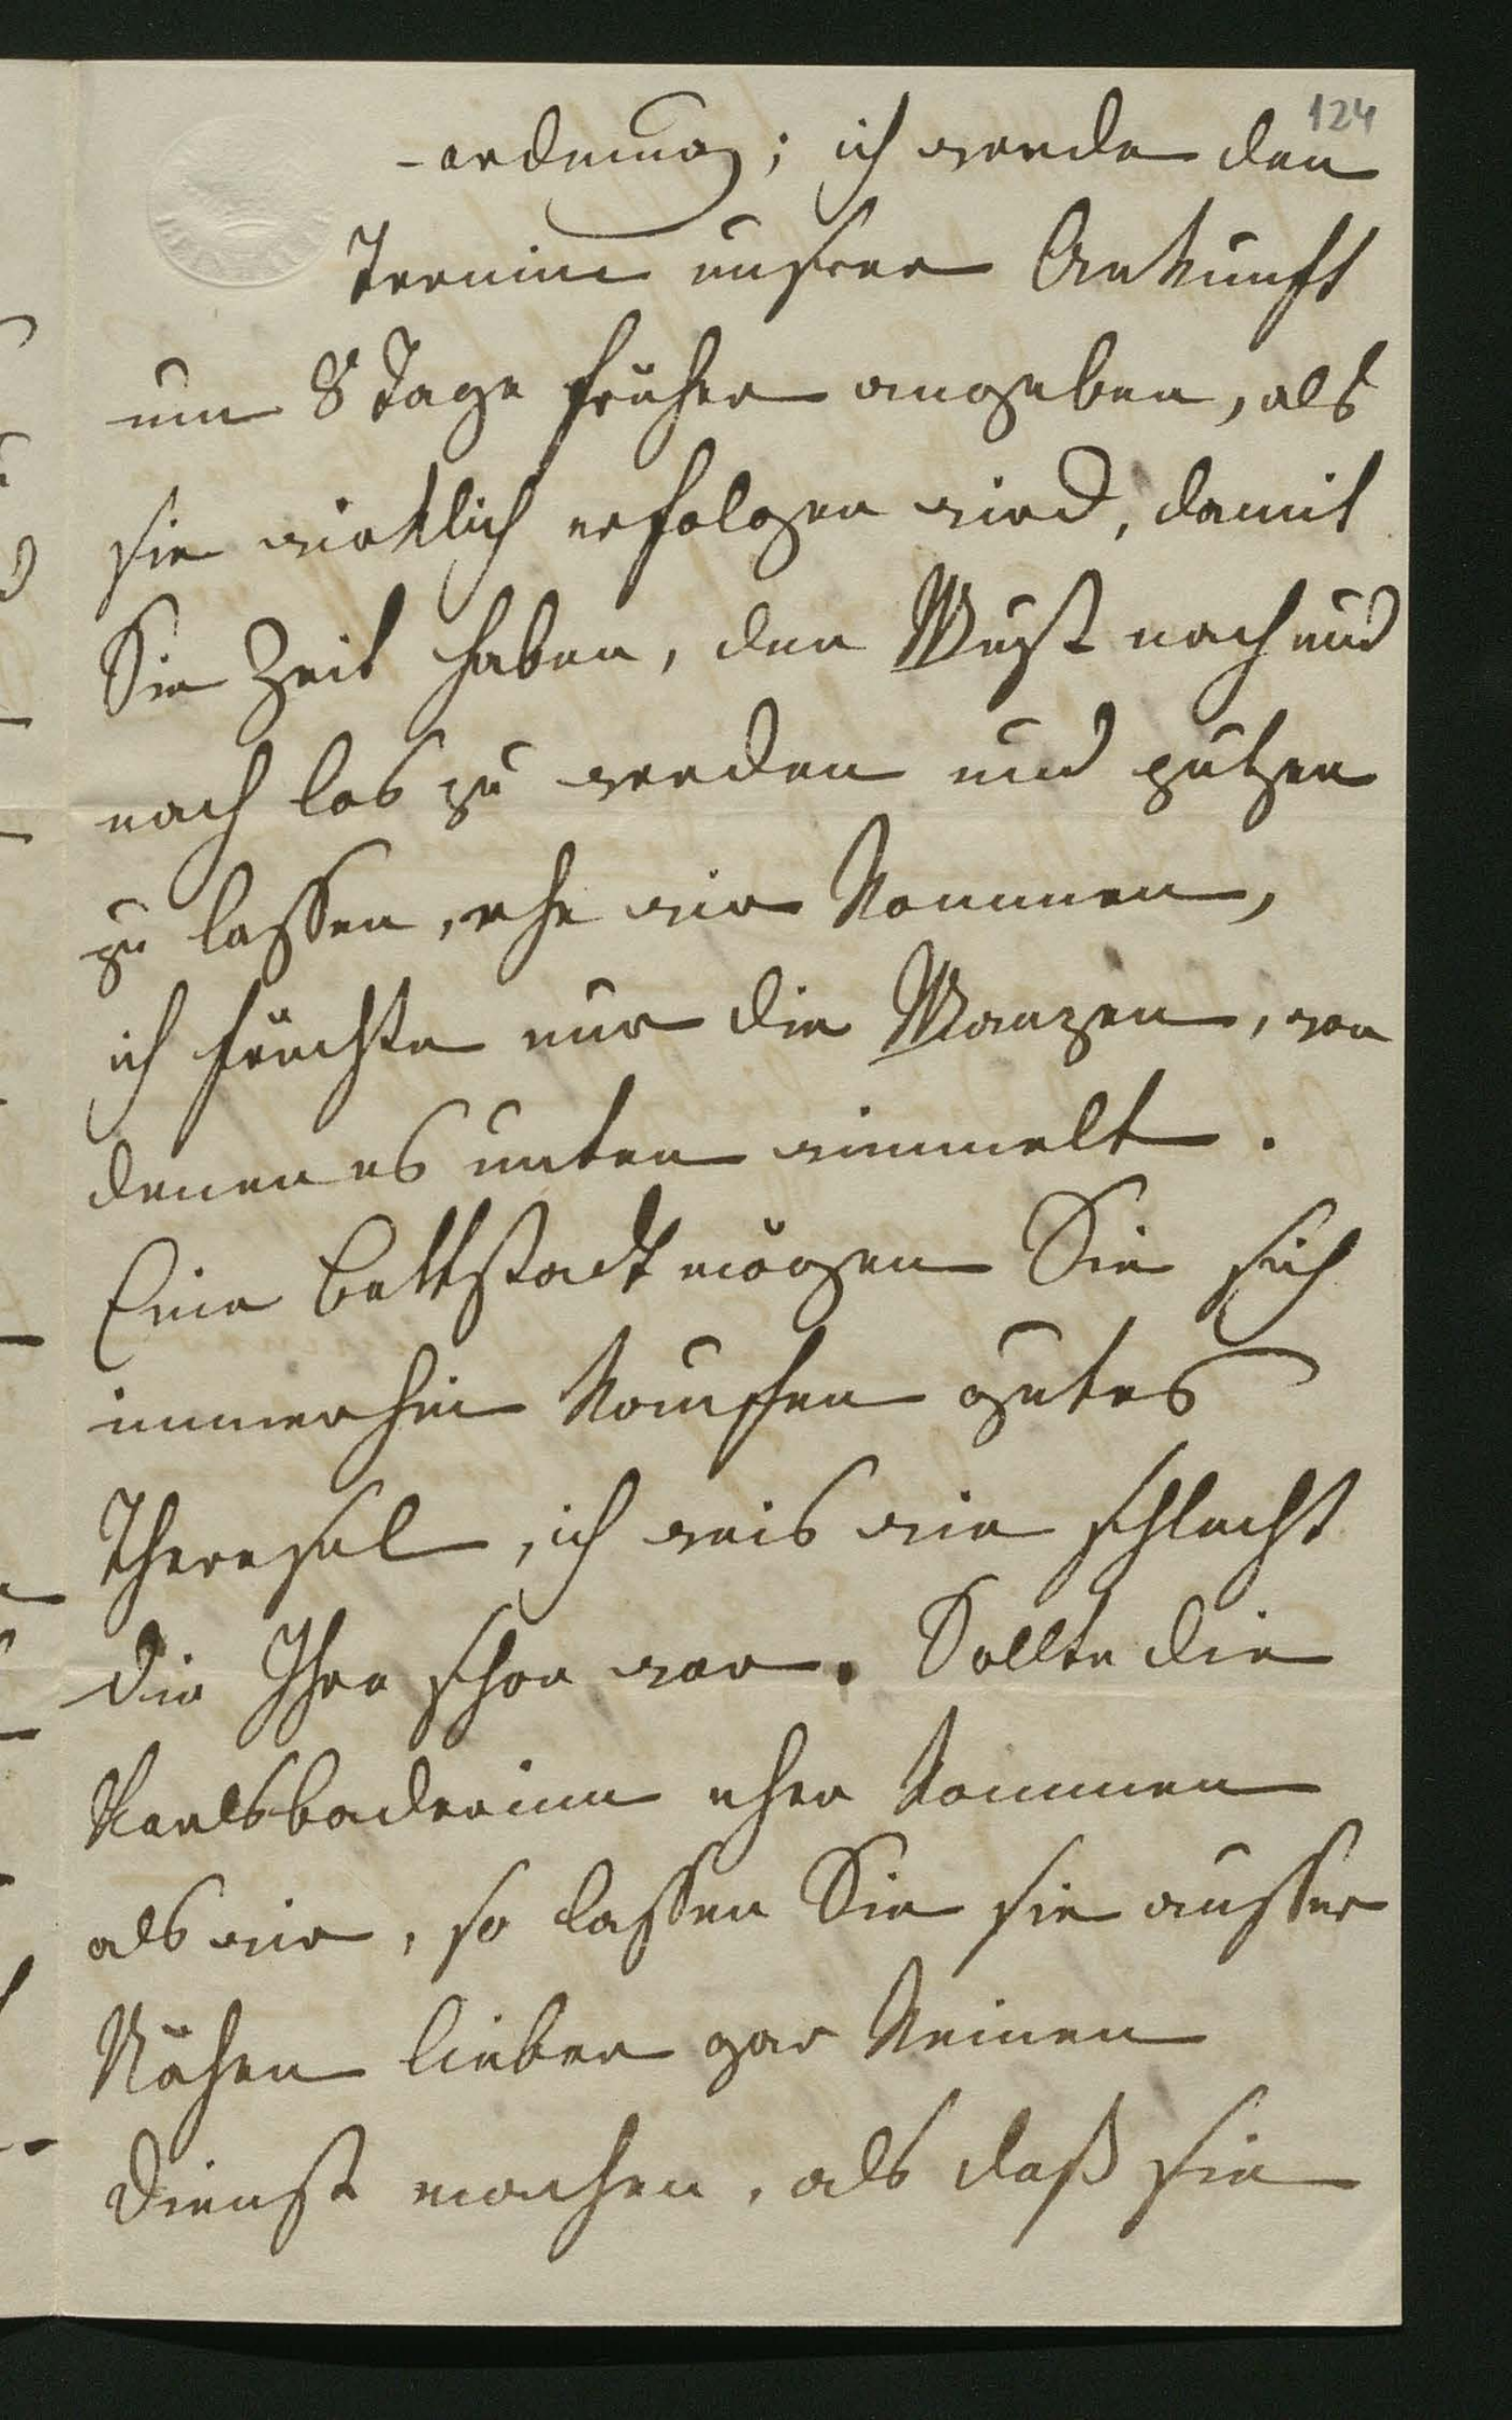 124
-ordnung; ich werde den
Termin unsrer Ankunft
um 8 Tage früher angeben, als
sie wirklich erfolgen wird, damit
Sie Zeit haben, den Wust nach und
nach los zu werden und putzen
zu lassen, ehe wir kommen,
ich fürchte nur die Wanzen, von
denen es unten wimmelt.
Eine Bettstadt mögen Sie sich
immerhin kaufen gutes
Theresel, ich weis wie schlecht
die Ihre schon war. Sollte die
Karlsbaderinn eher kommen
als wir, so lassen Sie sie ausser
Nähen lieber gar keinen
Dienst machen, als daß sie